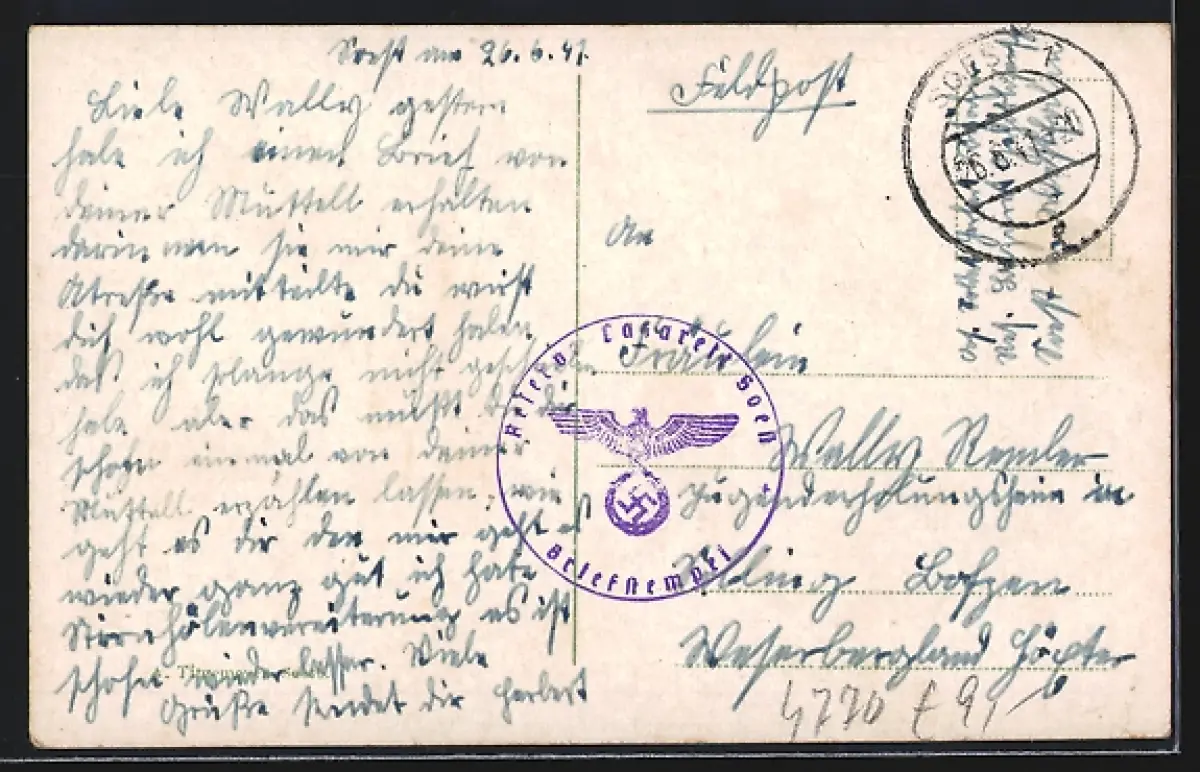 Soest am 26.6.41.
Liebe Wally gestern
habe ich einen Brief von
deiner Muttell erhalten
darin nen sie mir deine
Atreße mitteilte du wirst
dich wohl gewundert haben
das ich solange nicht geschrieben
habe aber das mußt du dir
schon einmal von deiner
Muttell erzählen lassen, wie
geht es dir den mir geht es
wieder ganz gut ich habe
Stirnhölenvereiterung es ist
schohn wieder besser. Viele
Grüße sendet dir Herbert
Feldpost
SOEST 1
26.6.41
An
Fräulein
Wally Remler
Jugenderholungsheim in
Bofzen
Weserbergland Höxter
Reserve-Lazarett Soest
Briefstempel
4770 £ 91